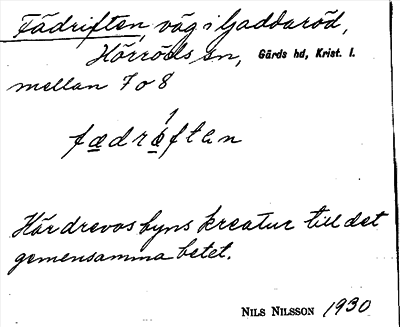 Fädriften, väg i Gaddaröd,
Hörröds sn, Gärds hd, Krist. l.
mellan 7 o 8
fædræ̀ften
Här drevos byns kreatur till det
gemensamma betet.
NILS NILSSON 1930